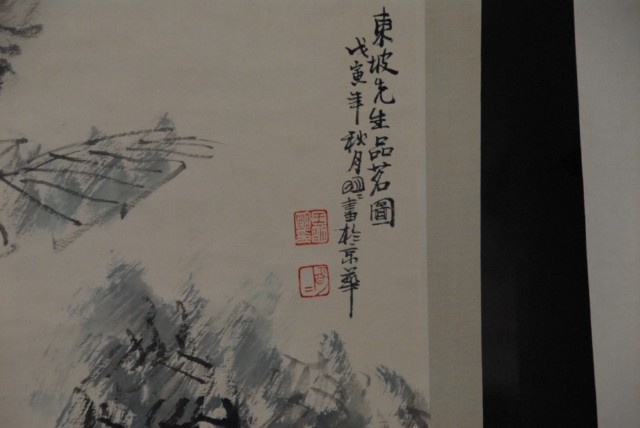 東坡先生品茗圖
戊寅年秋月明二書於京華